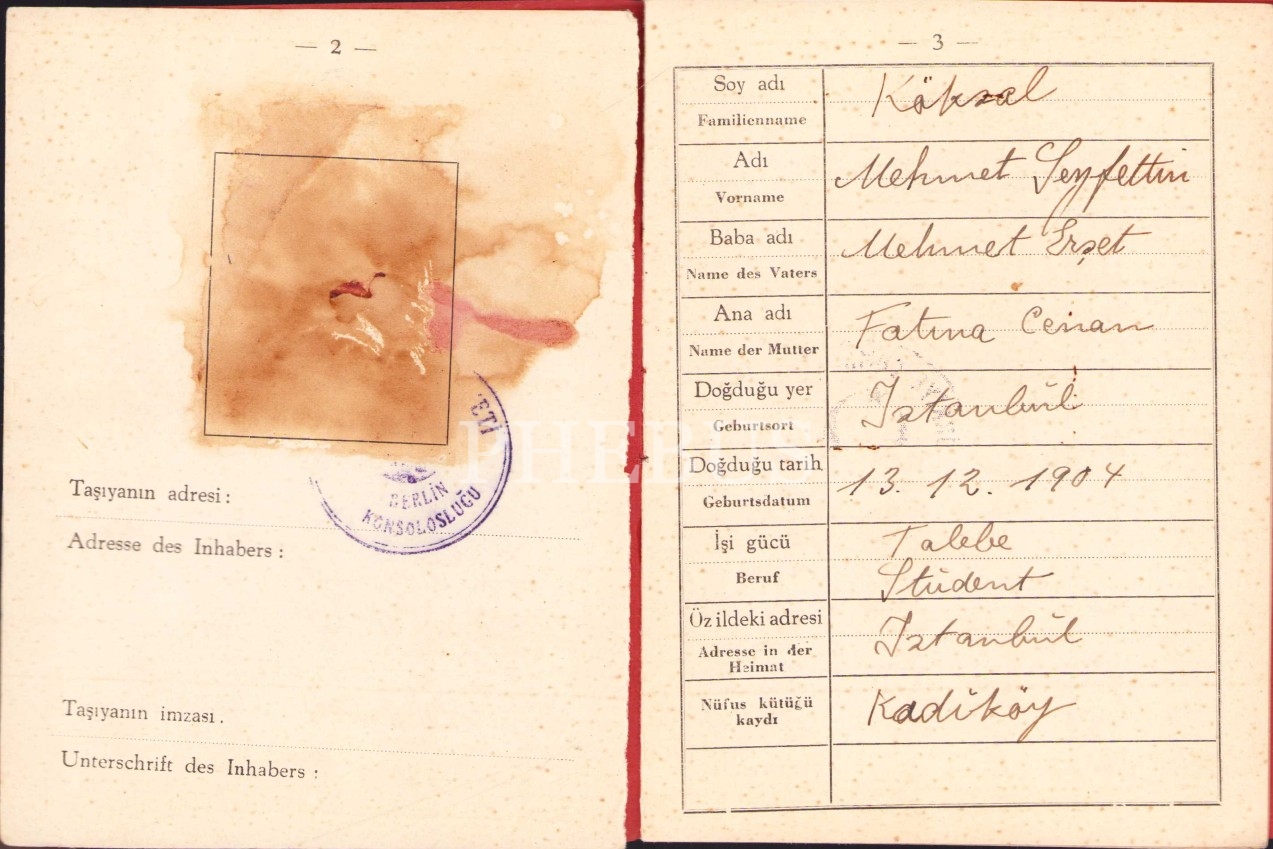 — 2 —
ETİ
BERLİN
KONSOLOSLUĞU
Taşıyanın adresi :
Adresse des Inhabers :
Taşıyanın imzası .
Unterschrift des Inhabers :
— 3 —
Soy adı
Familienname
Köksal
Adı
Vorname
Mehmet Seyfettin
Baba adı
Name des Vaters
Mehmet Erşet
Ana adı
Name der Mutter
Fatma Cenan
Doğduğu yer
Geburtsort
İstanbul
Doğduğu tarih
Geburtsdatum
13. 12. 1904
İşi gücü
Beruf
Talebe
Student
Öz ildeki adresi
Adresse in der
Heimat
İstanbul
Nüfus kütüğü
kaydı
Kadıköy
PHEBUS